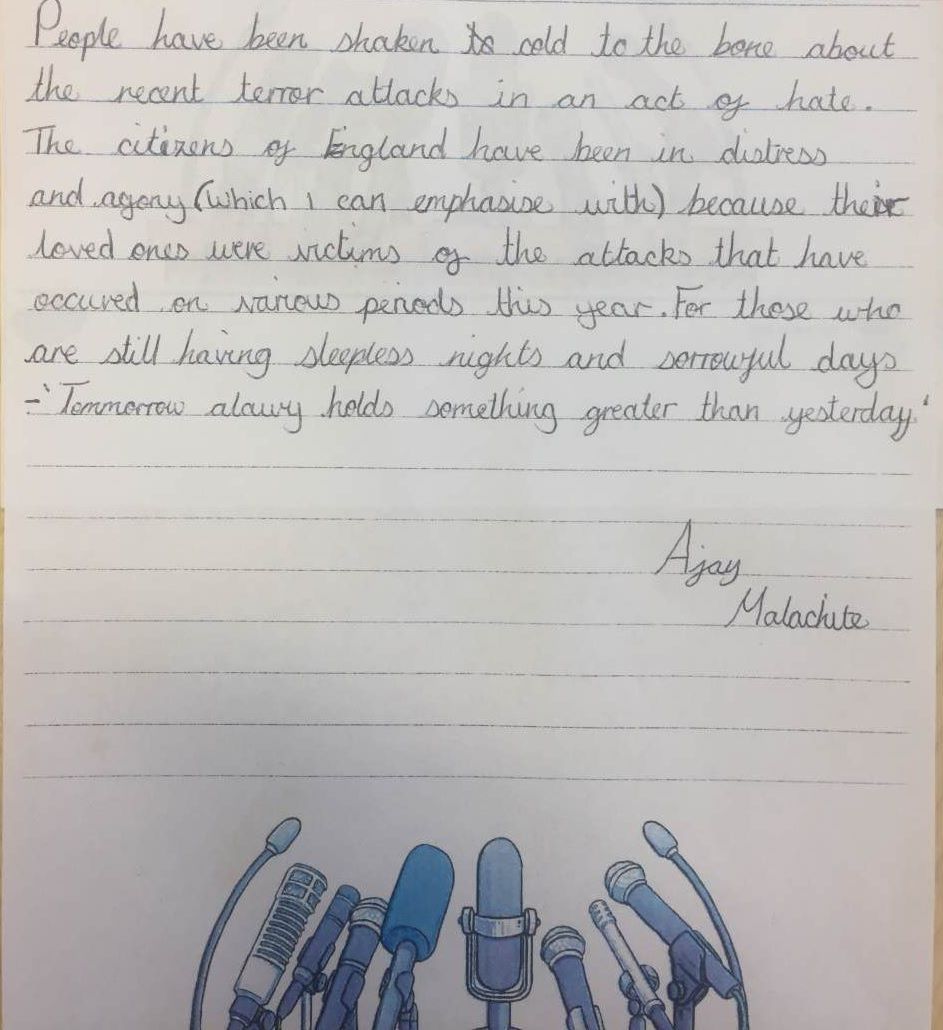 People have been shaken to cold to the bone about
the recent terror attacks in an act of hate.
The citizens of England have been in distress
and agony (which I can emphasise with) because their
loved ones were victims of the attacks that have
occured on various periods this year. For those who
are still having sleepless nights and sorrowful days
- 'Tommorrow alawy holds something greater than yesterday'
Ajay
Malachite